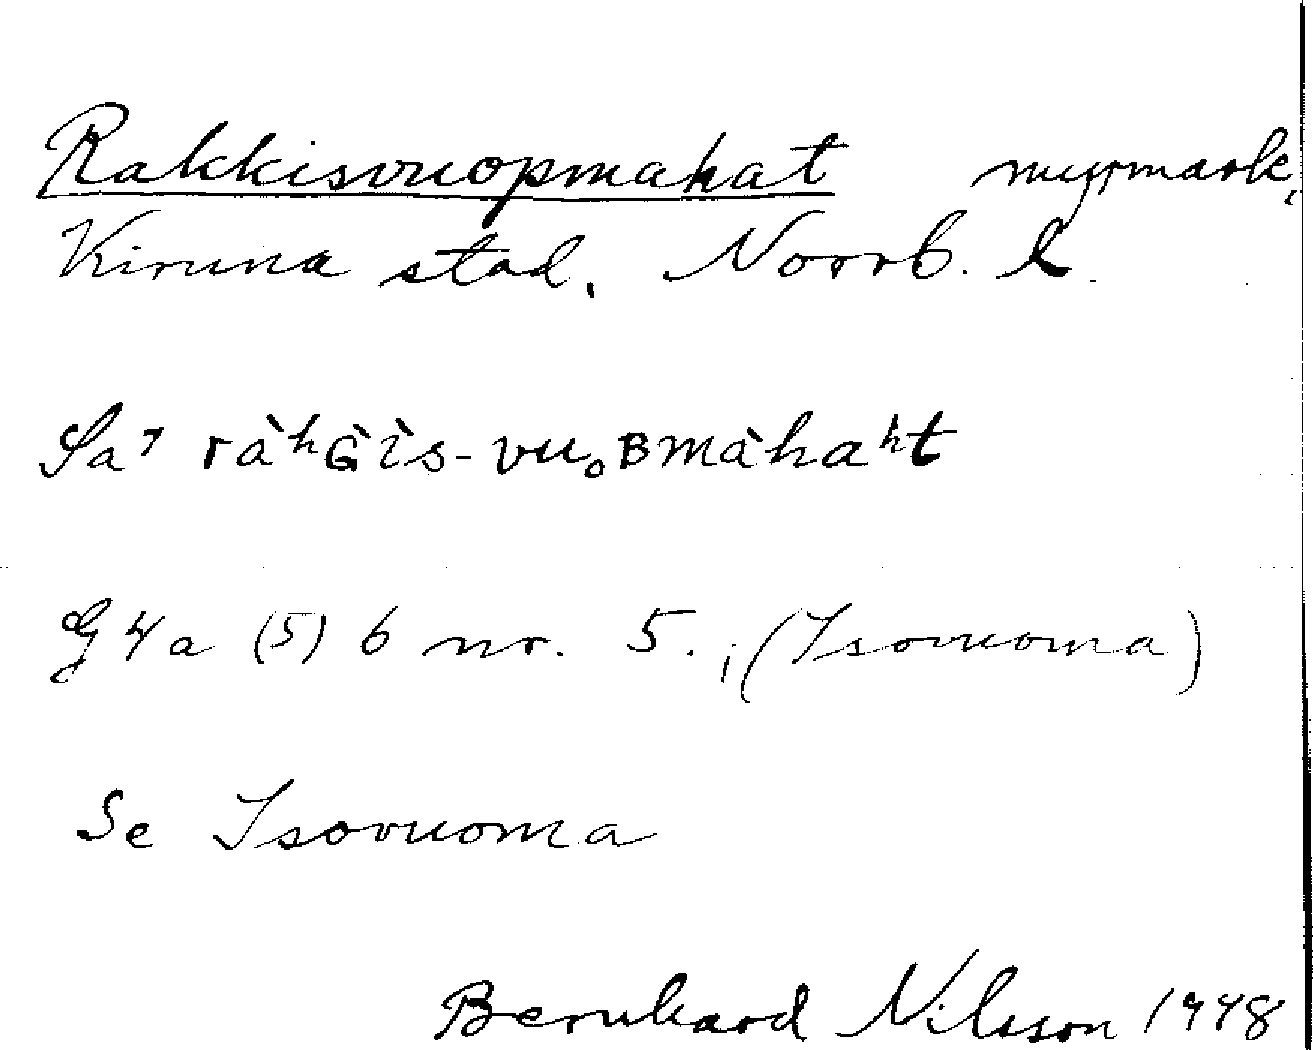 Rakkisvuopmahat myrmark,
Kiruna stad. Norrb. l.
Sa⁊ ràʰɢ̀ìs-vu̥ʙmàhaʰt
G4a (5) 6 nr. 5., (Isovuoma)
Se Isovuoma
Bernhard Nilsson 1948